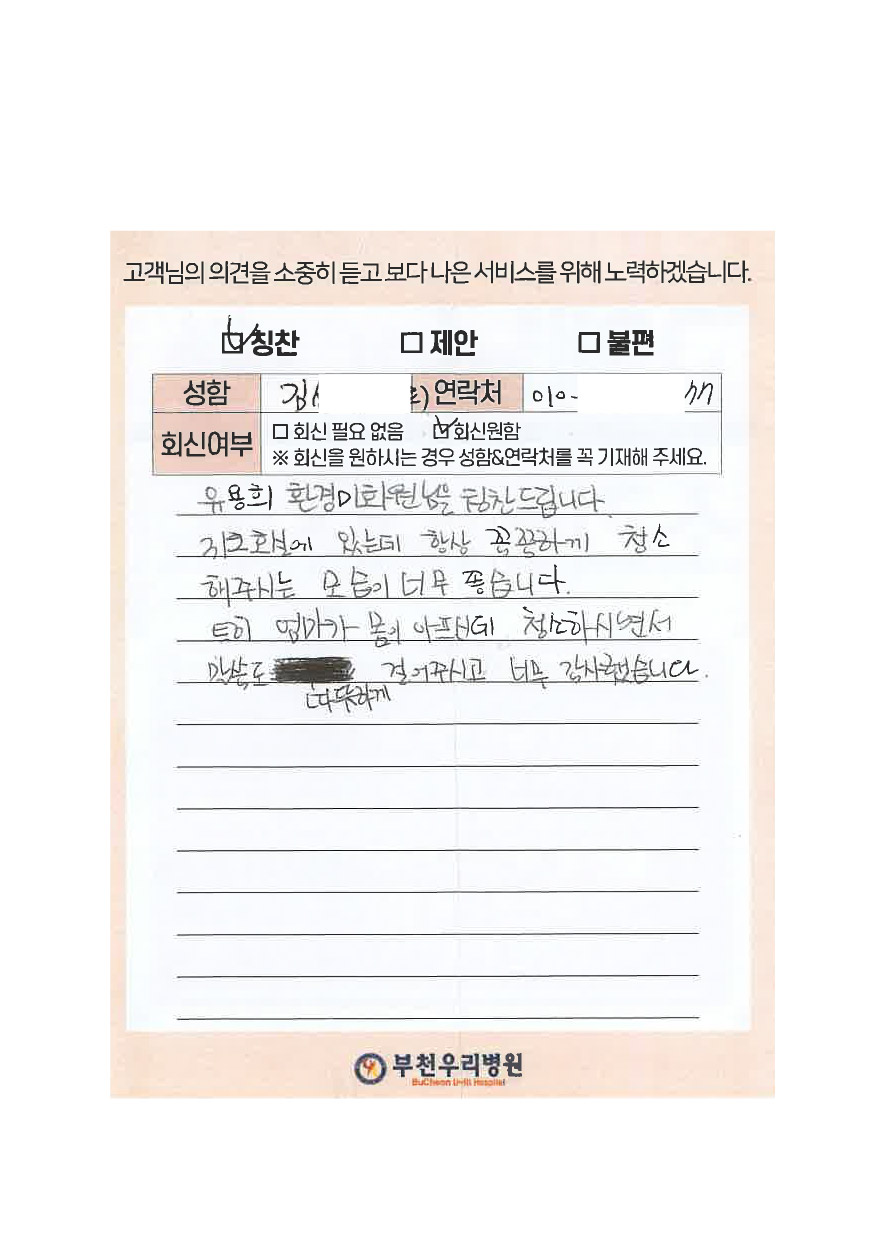 고객님의 의견을 소중히 듣고 보다 나은 서비스를 위해 노력하겠습니다.
☑ 칭찬 □ 제안 □ 불편
성함 김 연락처 010-
회신여부 □ 회신 필요 없음 ☑ 회신원함
※ 회신을 원하시는 경우 성함&연락처를 꼭 기재해 주세요.
유용희 환경미화원님을 칭찬드립니다.
있는데 항상 꼼꼼하게 청소
해주시는 모습이 너무 좋습니다.
특히 엄마가 몸이 아프신데 청소하시면서
말씀도 걸어주시고 너무 감사했습니다.
따뜻하게
부천우리병원
BuCheon U-ri Hospital